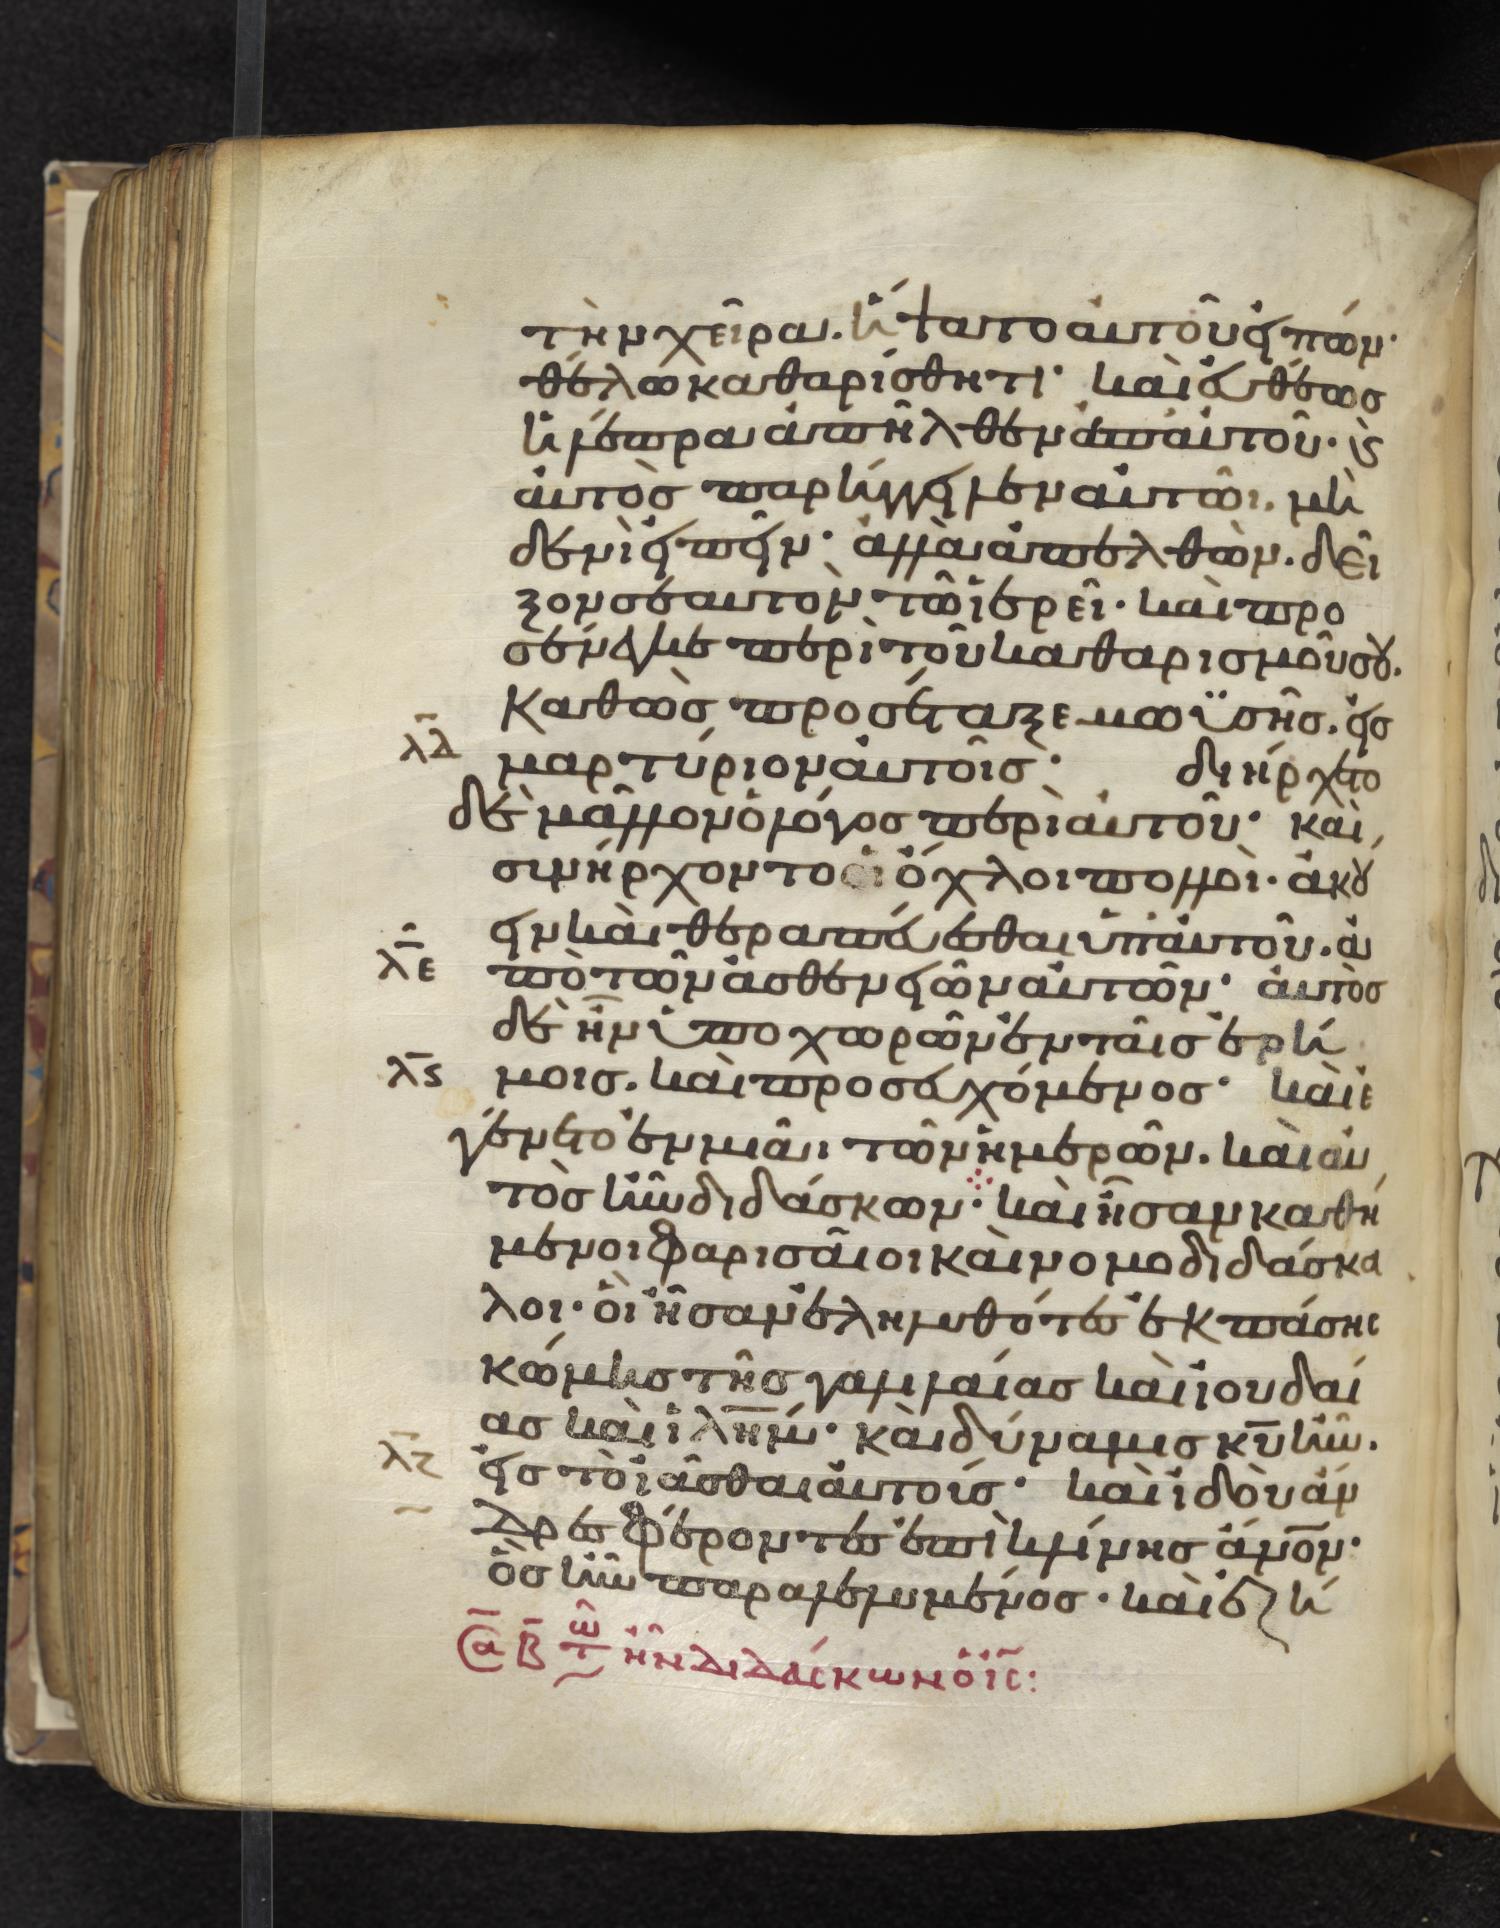 τὴν χεῖρα. ἥψατο αὐτοῦ εἰπών·
θέλω καθαρίσθητι· καὶ εὐθέως
ἡ λέπρα ἀπῆλθεν ἀπ' αὐτοῦ· ϗ
αὐτὸς παρήγγειλεν αὐτῶι. μὴ
δενὶ εἰπεῖν· ἀλλὰ ἀπελθὼν. δεῖ
ξον σεαυτὸν τῶ ἱερεῖ· καὶ προ
σένεγκε περὶ τοῦ καθαρισμοῦ σου.
Καθὼς προσέταξε μωϋσῆς. εἰς
λδ μαρτύριον αὐτοῖς· διήρχετο
δὲ μᾶλλον ὁ λόγος περὶ αὐτοῦ· καὶ
συνήρχοντο ὄχλοι πολλοὶ· ἀκού
ειν καὶ θεραπεύεσθαι ὑπ' αὐτοῦ. ἀ
λε πὸ τῶν ἀσθενειῶν αὐτῶν· αὐτὸς
δὲ ἦν ὑποχωρῶν ἐν ταῖς ἐρή
λς μοις. καὶ προσευχόμενος· καὶ ἐ
γένετο ἐν μιᾶι τῶν ἡμερῶν. καὶ αὐ
τὸς ἦν διδάσκων· καὶ ἦσαν καθή
μενοι φαρισαῖοι καὶ νομοδιδάσκα
λοι· οἳ ἦσαν ἐληλυθότες ἐκ πάσης
κώμης τῆς γαλιλαίας καὶ ἰουδαί
ας καὶ ἰλημ· καὶ δύναμις κυ ἦν.
λζ εἰς τὸ ἰᾶσθαι αὐτούς· καὶ ἰδοὺ ἄν
δρες φέροντες ἐπὶ κλίνης ἄνον·
ὃς ἦν παραλελυμένος· καὶ ἐζή
Ϲα β τῶ ἦν διδάσκων ὁ ις: